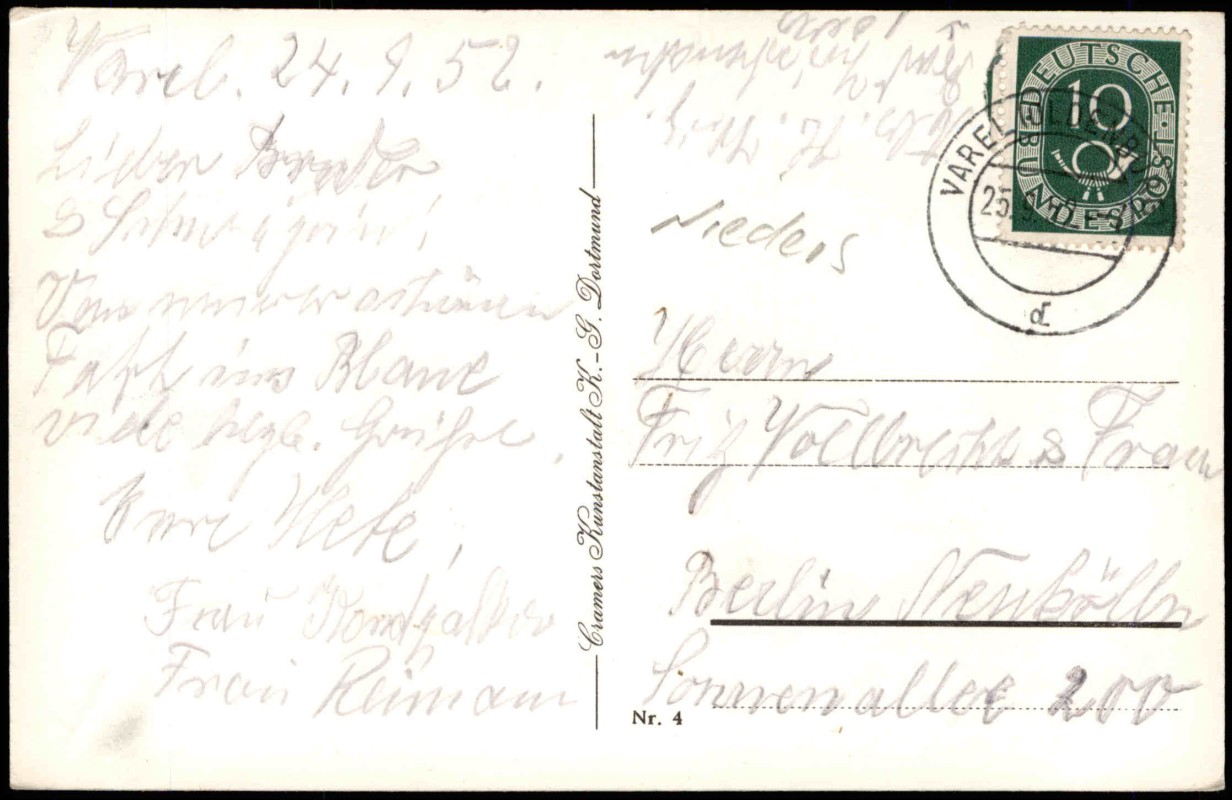 Varel. 24. 9. 52.
Lieber Bruder
& Schwägerin!
Von unserer schönen
Fahrt ins Blaue
viele herzl. Grüße,
Eure Hete,
Frau
Frau Reimann
Cramers Kunstanstalt K.-G. Dortmund
Nr. 4
DEUTSCHE BUNDESPOST
10
VAREL (OLDENB)
25.9.52
d
Nieders
Herrn
Fritz Vollbrecht & Frau
Berlin Neukölln
Sonnenallee 200